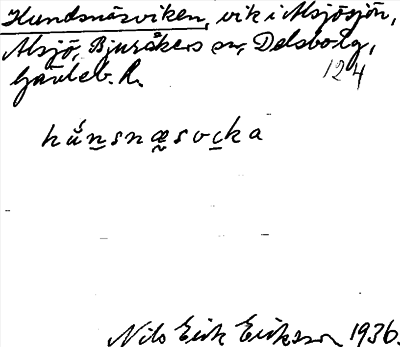 Hundsnäsviken, vik i Alsjösjön,
Alsjö, Bjuråkers sn, Delsbo tg,
Gävleb. l.
124
hůnsnæsvcka
Nils Erik Eriksson 1936.